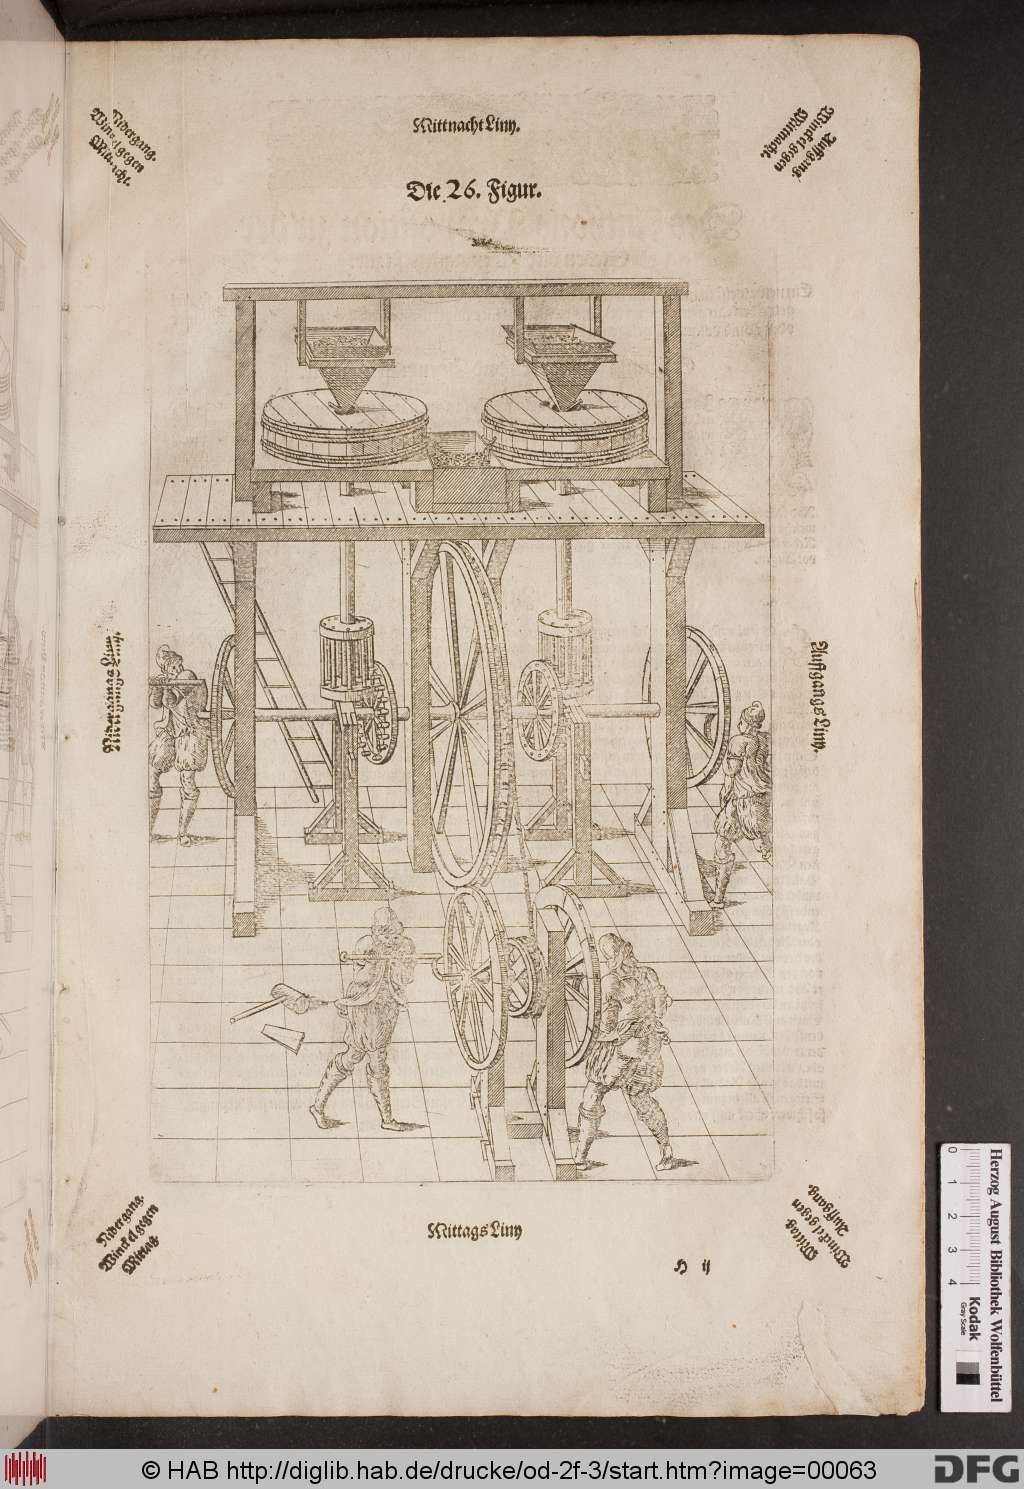 Nidergang.
Winckel gegen
Mitnacht.
Mittnacht Liny.
Auffgang.
Winckel gegen
Mitnacht.
Die 26. Figur.
Nidergangs Liny.
Auffgangs Liny.
Nidergang.
Winckel gegen
Mittag
Mittags Liny
Auffgang.
Winckel gegen
Mittag
H ij
0 1 2 3 4
Herzog August Bibliothek Wolfenbüttel
Kodak
Gray Scale
© HAB http://diglib.hab.de/drucke/od-2f-3/start.htm?image=00063
DFG